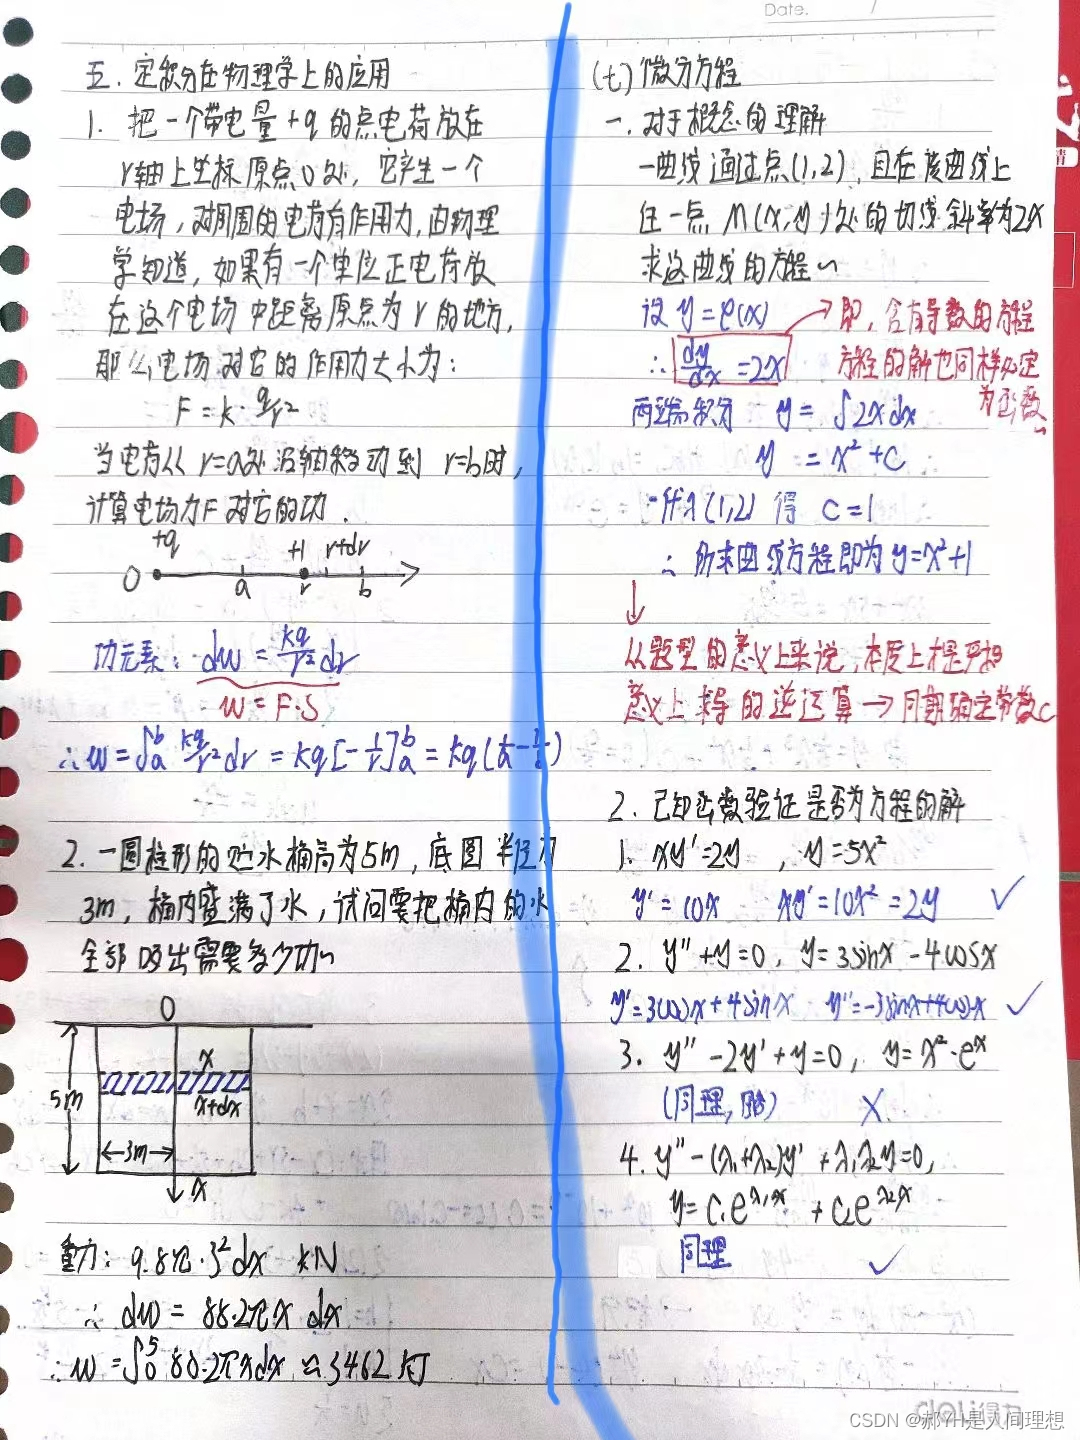 Date.
五. 定积分在物理学上的应用
1. 把一个带电量+q的点电荷放在
r轴上坐标原点O处, 它产生一个
电场, 对周围的电荷有作用力, 由物理
学知道, 如果有一个单位正电荷放
在这个电场中距离原点为r的地方,
那么电场对它的作用力大小为:
F=k·q/r²
当电荷从r=a处沿轴移动到r=b时,
计算电场力F对它的功.
+q +1 r+dr
O a r b
功元素: dw = kq/r² dr
w=F·S
∴w=∫ₐᵇ kq/r² dr = kq[-1/r]ₐᵇ = kq(1/a-1/b)
2. 一圆柱形的贮水桶高为5m, 底圆半径为
3m, 桶内盛满了水, 试问要把桶内的水
全部吸出需要多少功~
O
x
5m x+dx
3m
x
重力: 9.8π·3²dx kN
∴ dw = 88.2πx dx
∴w=∫₀⁵ 88.2πxdx ≈3462 kJ
(七)微分方程
一. 对于概念的理解
一曲线通过点(1,2), 且在该曲线上
任一点M(x,y)处的切线斜率为2x
求这曲线的方程~
设y=φ(x)
∴ dy/dx =2x
即, 含有导数的方程
方程的解也同样必定
为函数~
两端积分 y= ∫2xdx
y = x²+C
代入(1,2)得 C=1
∴所求曲线方程即为y=x²+1
从题型的意义上来说, 本质上才是严格
意义上求导的逆运算→同期确定常数C
2. 已知函数验证是否为方程的解
1. xy'=2y , y=5x²
y'=10x xy'=10x²=2y ✓
2. y''+y=0, y=3sinx-4cosx
y'=3cosx+4sinx y''=-3sinx+4cosx ✓
3. y''-2y'+y=0, y=x²·eˣ
(同理, 略) X
4. y''-(λ₁+λ₂)y'+λ₁λ₂y=0,
y=C₁e^λ₁x + C₂e^λ₂x
同理 ✓
deli得力
CSDN @郝YH是人间理想